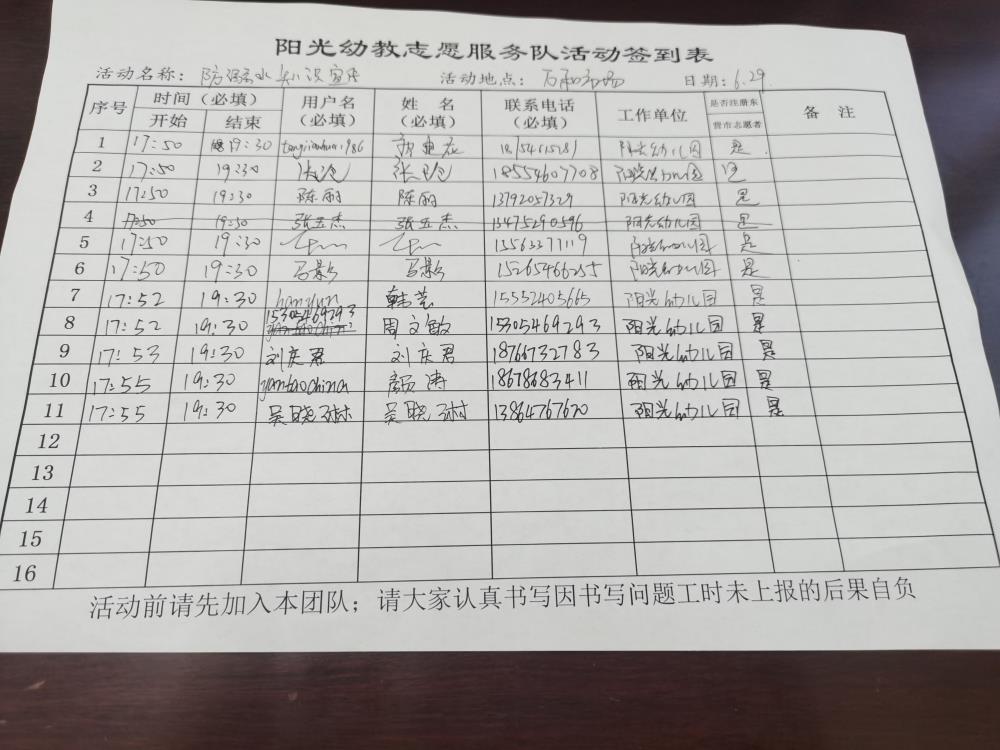 阳光幼教志愿服务队活动签到表
活动名称：防溺水知识宣传 活动地点： 日期：6.29
序号 时间（必填） 用户名（必填） 姓名（必填） 联系电话（必填） 工作单位 是否注册东营市志愿者 备注
开始 结束
1 17:50 19:30 阳光幼儿园 是
2 17:50 19:30 张玲 张玲 18554607708 阳光幼儿园 是
3 17:50 19:30 陈丽 陈丽 13793057329 阳光幼儿园 是
4 17:50 19:30 张玉杰 张玉杰 13475290596 阳光幼儿园 是
5 17:50 19:30 15563377119 阳光幼儿园 是
6 17:50 19:30 15265466255 阳光幼儿园 是
7 17:52 19:30 hanyun 韩芸 15552405665 阳光幼儿园 是
8 17:52 19:30 15305469293 周文敏 15305469293 阳光幼儿园 是
9 17:53 19:30 刘庆君 刘庆君 18766732783 阳光幼儿园 是
10 17:55 19:30 yantaochina 颜涛 18678683411 阳光幼儿园 是
11 17:55 19:30 吴晓琳 吴晓琳 13864767620 阳光幼儿园 是
12
13
14
15
16
活动前请先加入本团队；请大家认真书写因书写问题工时未上报的后果自负